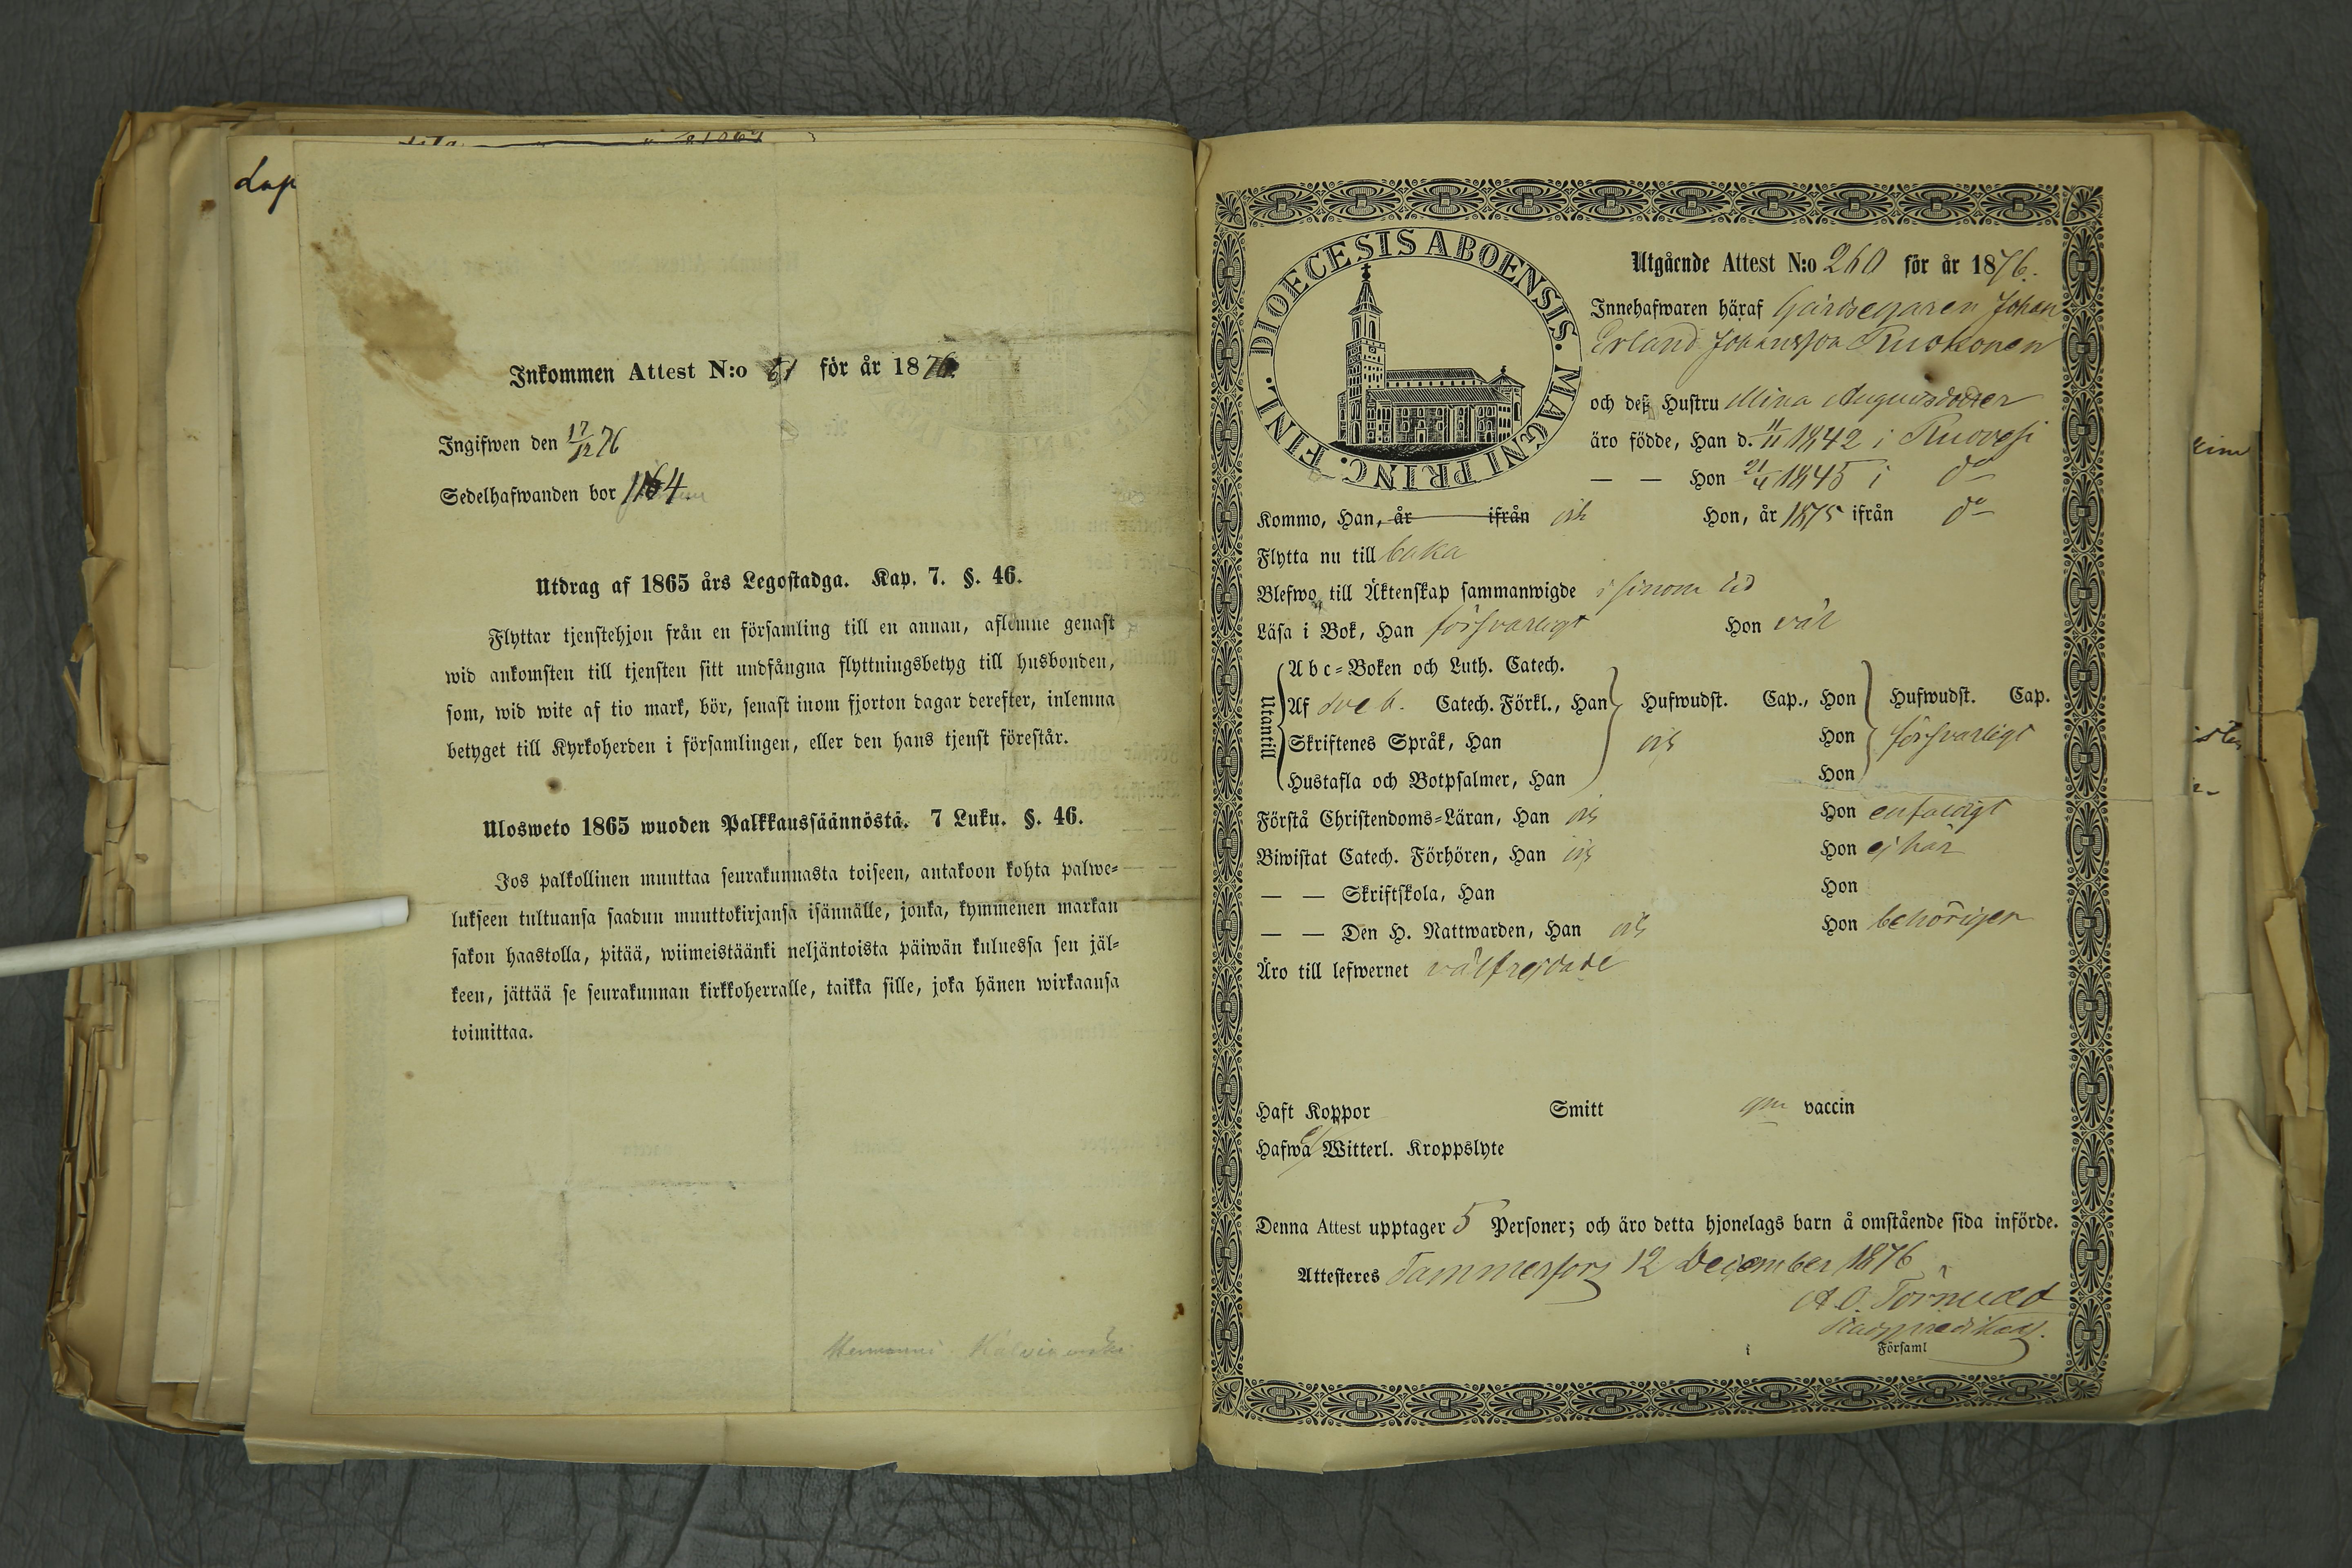 Lap
Inkommen Attest N:o 81 för år 1876.
Ingifwen den 17/12 76
Sedelhafwanden bor 1164.
Utdrag af 1865 års Legostadga. Kap. 7. §. 46.
Flyttar tjenstehjon från en församling till en annan, aflemne genast
wid ankomsten till tjensten sitt undfångna flyttningsbetyg till husbonden,
som, wid wite af tio mark, bör, senast inom fjorton dagar derefter, inlemna
betyget till Kyrkoherden i församlingen, eller den hans tjenst förestår.
Ulosweto 1865 wuoden Palkkaussäännöstä. 7 Luku. §. 46.
Jos palkollinen muuttaa seurakunnasta toiseen, antakoon kohta palwe-
lukseen tultuansa saadun muuttokirjansa isännälle, jonka, kymmenen markan
sakon haastolla, pitää, wiimeistäänki neljäntoista päiwän kuluessa sen jäl-
keen, jättää se seurakunnan kirkkoherralle, taikka sille, joka hänen wirkaansa
toimittaa.
DIOECESIS ABOENSIS. MAGNI PRINC. FINL.
Utgående Attest N:o 260 för år 1876.
Innehafwaren häraf Gårdsegaren Johan
Erland Johansson Ruokonen
och deß Hustru Mina Augustsdotter
äro födde, Han d. 11/11 1842 i Ruovesi
— — Hon 21/4 1845 i do
Kommo, Han, år ifrån Hon, år 1875 ifrån do
Flytta nu till baka
Blefwo till Äktenskap sammanwigde i sinom tid
Läsa i Bok, Han försvarligt Hon väl
Utantill
Abc-Boken och Luth. Catech.
Af Sveb. Catech. Förkl., Han Hufwudst. Cap., Hon Hufwudst. Cap.
Skriftenes Språk, Han Hon försvarligt
Hustafla och Botpsalmer, Han Hon
Förstå Christendoms-Läran, Han Hon enfaldigt
Biwistat Catech. Förhören, Han Hon ej här
— — Skriftskola, Han Hon
— — Den H. Nattwarden, Han Hon behörigen
Äro till lefwernet välfrejdade
Haft Koppor Smitt gm vaccin
Hafwa ej Witterl. Kroppslyte
Denna Attest upptager 5 Personer; och äro detta hjonelags barn å omstående sida införde.
Attesteres Tammerfors 12 December 1876
A. O. Törnudd
i Församl